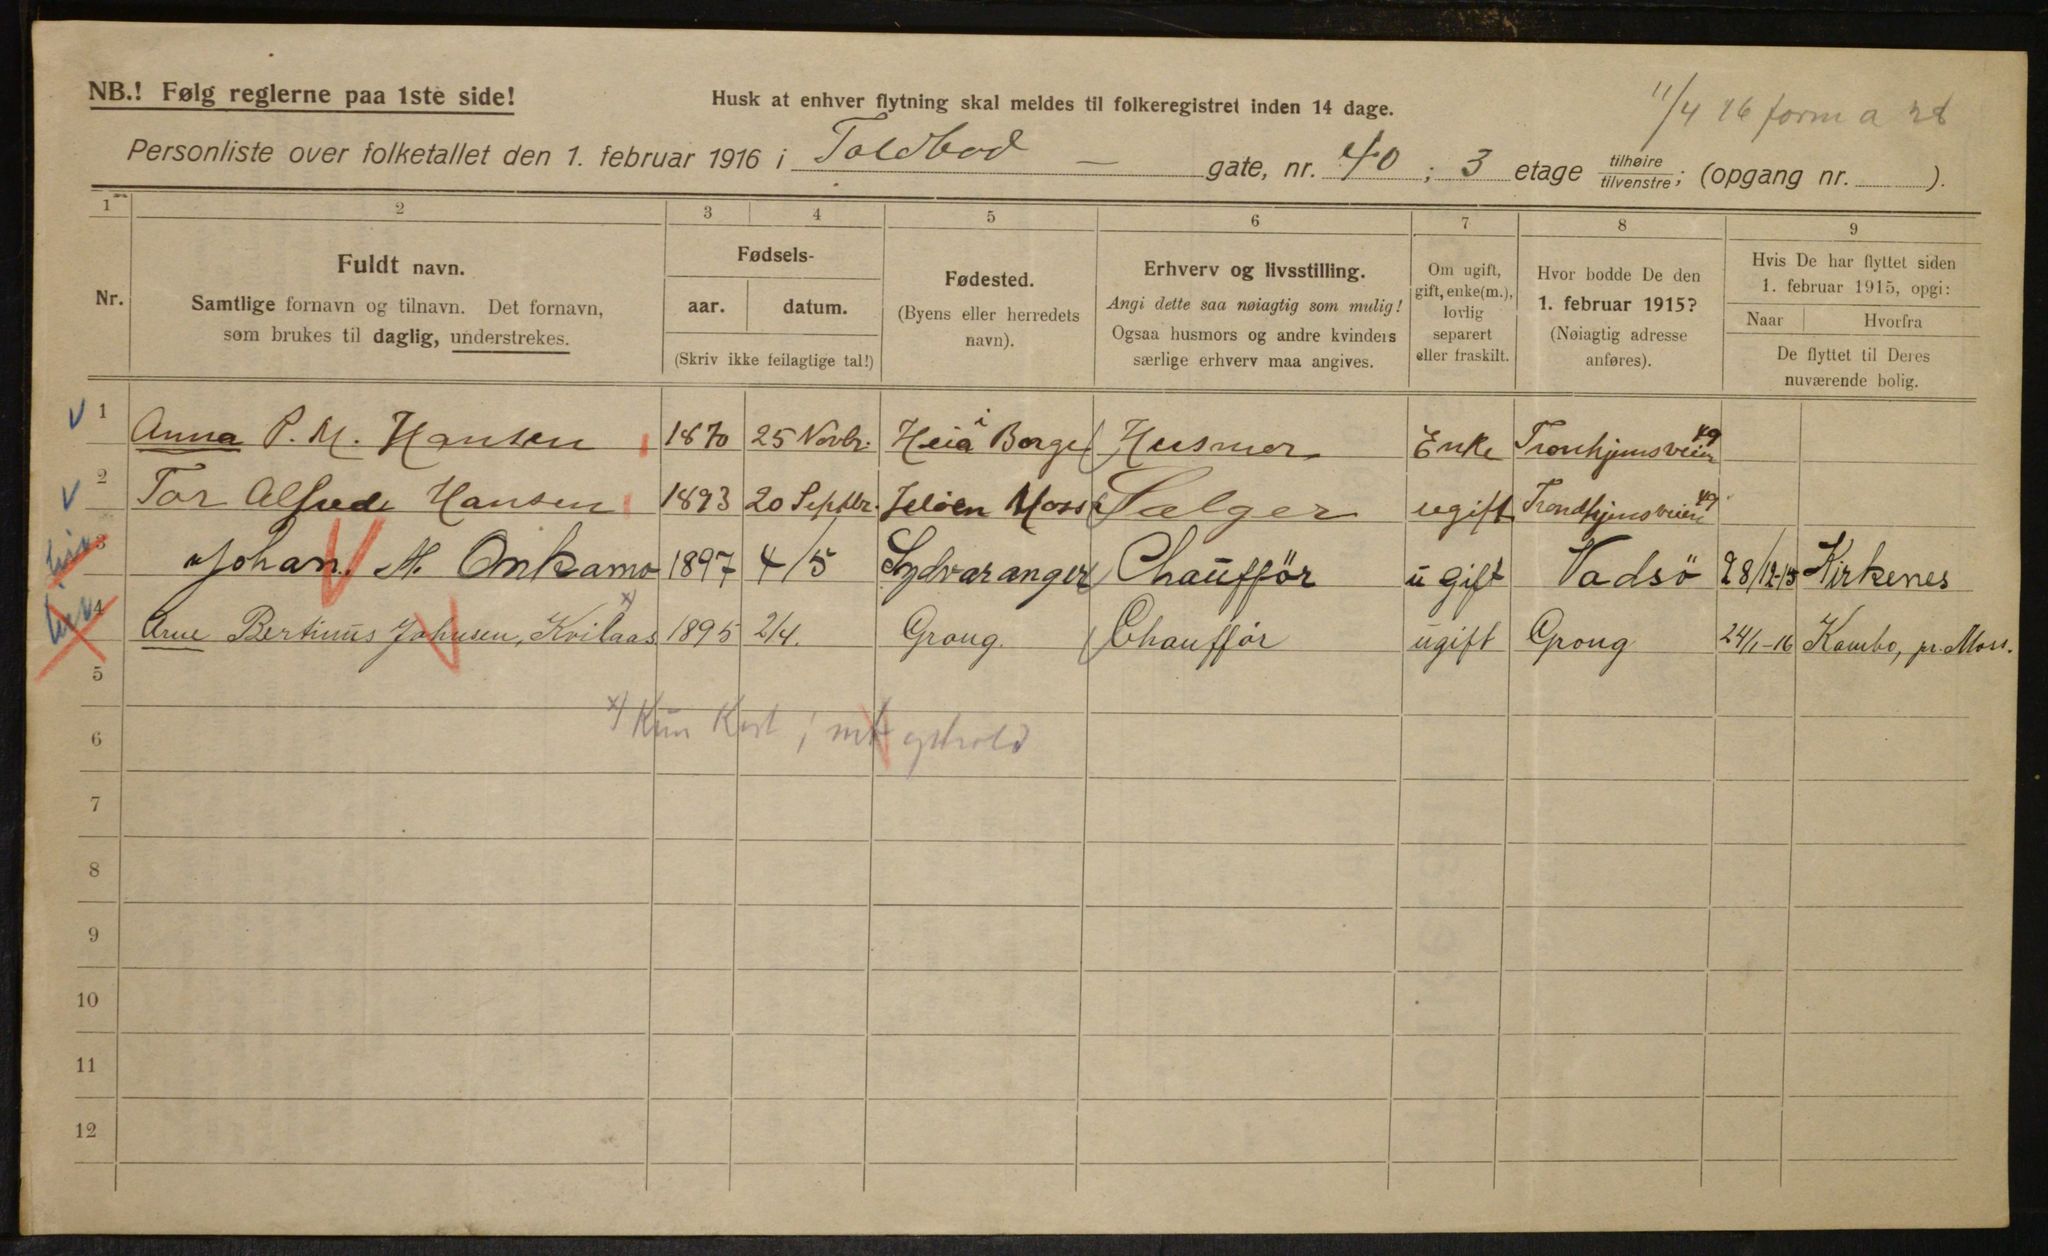 NB.! Følg reglerne paa 1ste side!
Husk at enhver flytning skal meldes til folkeregistret inden 14 dage.
11/4 16 form a 28
Personliste over folketallet den 1. februar 1916 i Toldbod — gate, nr. 40 ; 3 etage tilhøire/tilvenstre; (opgang nr. ).
1 2 3 4 5 6 7 8 9
Nr.
Fuldt navn.
Samtlige fornavn og tilnavn. Det fornavn,
som brukes til daglig, understrekes.
Fødsels-
aar. datum.
(Skriv ikke feilagtige tal!)
Fødested.
(Byens eller herredets
navn).
Erhverv og livsstilling.
Angi dette saa nøiagtig som mulig!
Ogsaa husmors og andre kvinders
særlige erhverv maa angives.
Om ugift,
gift, enke(m.),
lovlig
separert
eller fraskilt.
Hvor bodde De den
1. februar 1915?
(Nøiagtig adresse
anføres).
Hvis De har flyttet siden
1. februar 1915, opgi:
Naar Hvorfra
De flyttet til Deres
nuværende bolig.
1 Anna P. M. Hansen 1870 25 Novbr. Heia i Borge Husmor Enke Tronhjemsveien 49
2 Tor Alfred Hansen 1893 20 Septbr. Jeløen Moss Selger ugift Trondhjemsveien 49
3 Johan M. Onkamo 1897 4/5 Sydvaranger Chaufför ugift Vadsö 28/12-15 Kirkenes
4 Arne Bertinus Johnsen, Kvilaas x 1895 2/4. Grong. Chauffór ugift Grong 24/1-16 Kambo, pr. Moss.
5
x) Kun Kost;
6
7
8
9
10
11
12